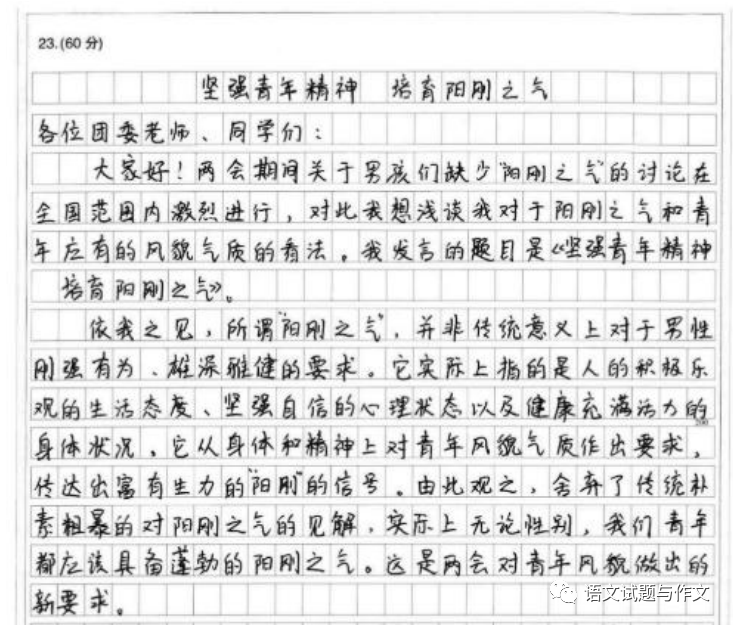 23.(60分)
坚强青年精神 培育阳刚之气
各位团委老师、同学们：
大家好！两会期间关于男孩们缺少“阳刚之气”的讨论在
全国范围内激烈进行，对此我想浅谈我对于阳刚之气和青
年应有的风貌气质的看法。我发言的题目是《坚强青年精神
培育阳刚之气》。
依我之见，所谓“阳刚之气”，并非传统意义上对于男性
刚强有为、雄深雅健的要求。它实际上指的是人的积极乐
观的生活态度、坚强自信的心理状态以及健康充满活力的
身体状况。它从身体和精神上对青年风貌气质作出要求，
200
传达出富有生力的“阳刚”的信号。由此观之，舍弃了传统朴
素粗暴的对阳刚之气的见解，实际上无论性别，我们青年
都应该具备蓬勃的阳刚之气。这是两会对青年风貌做出的
新要求。
语文试题与作文